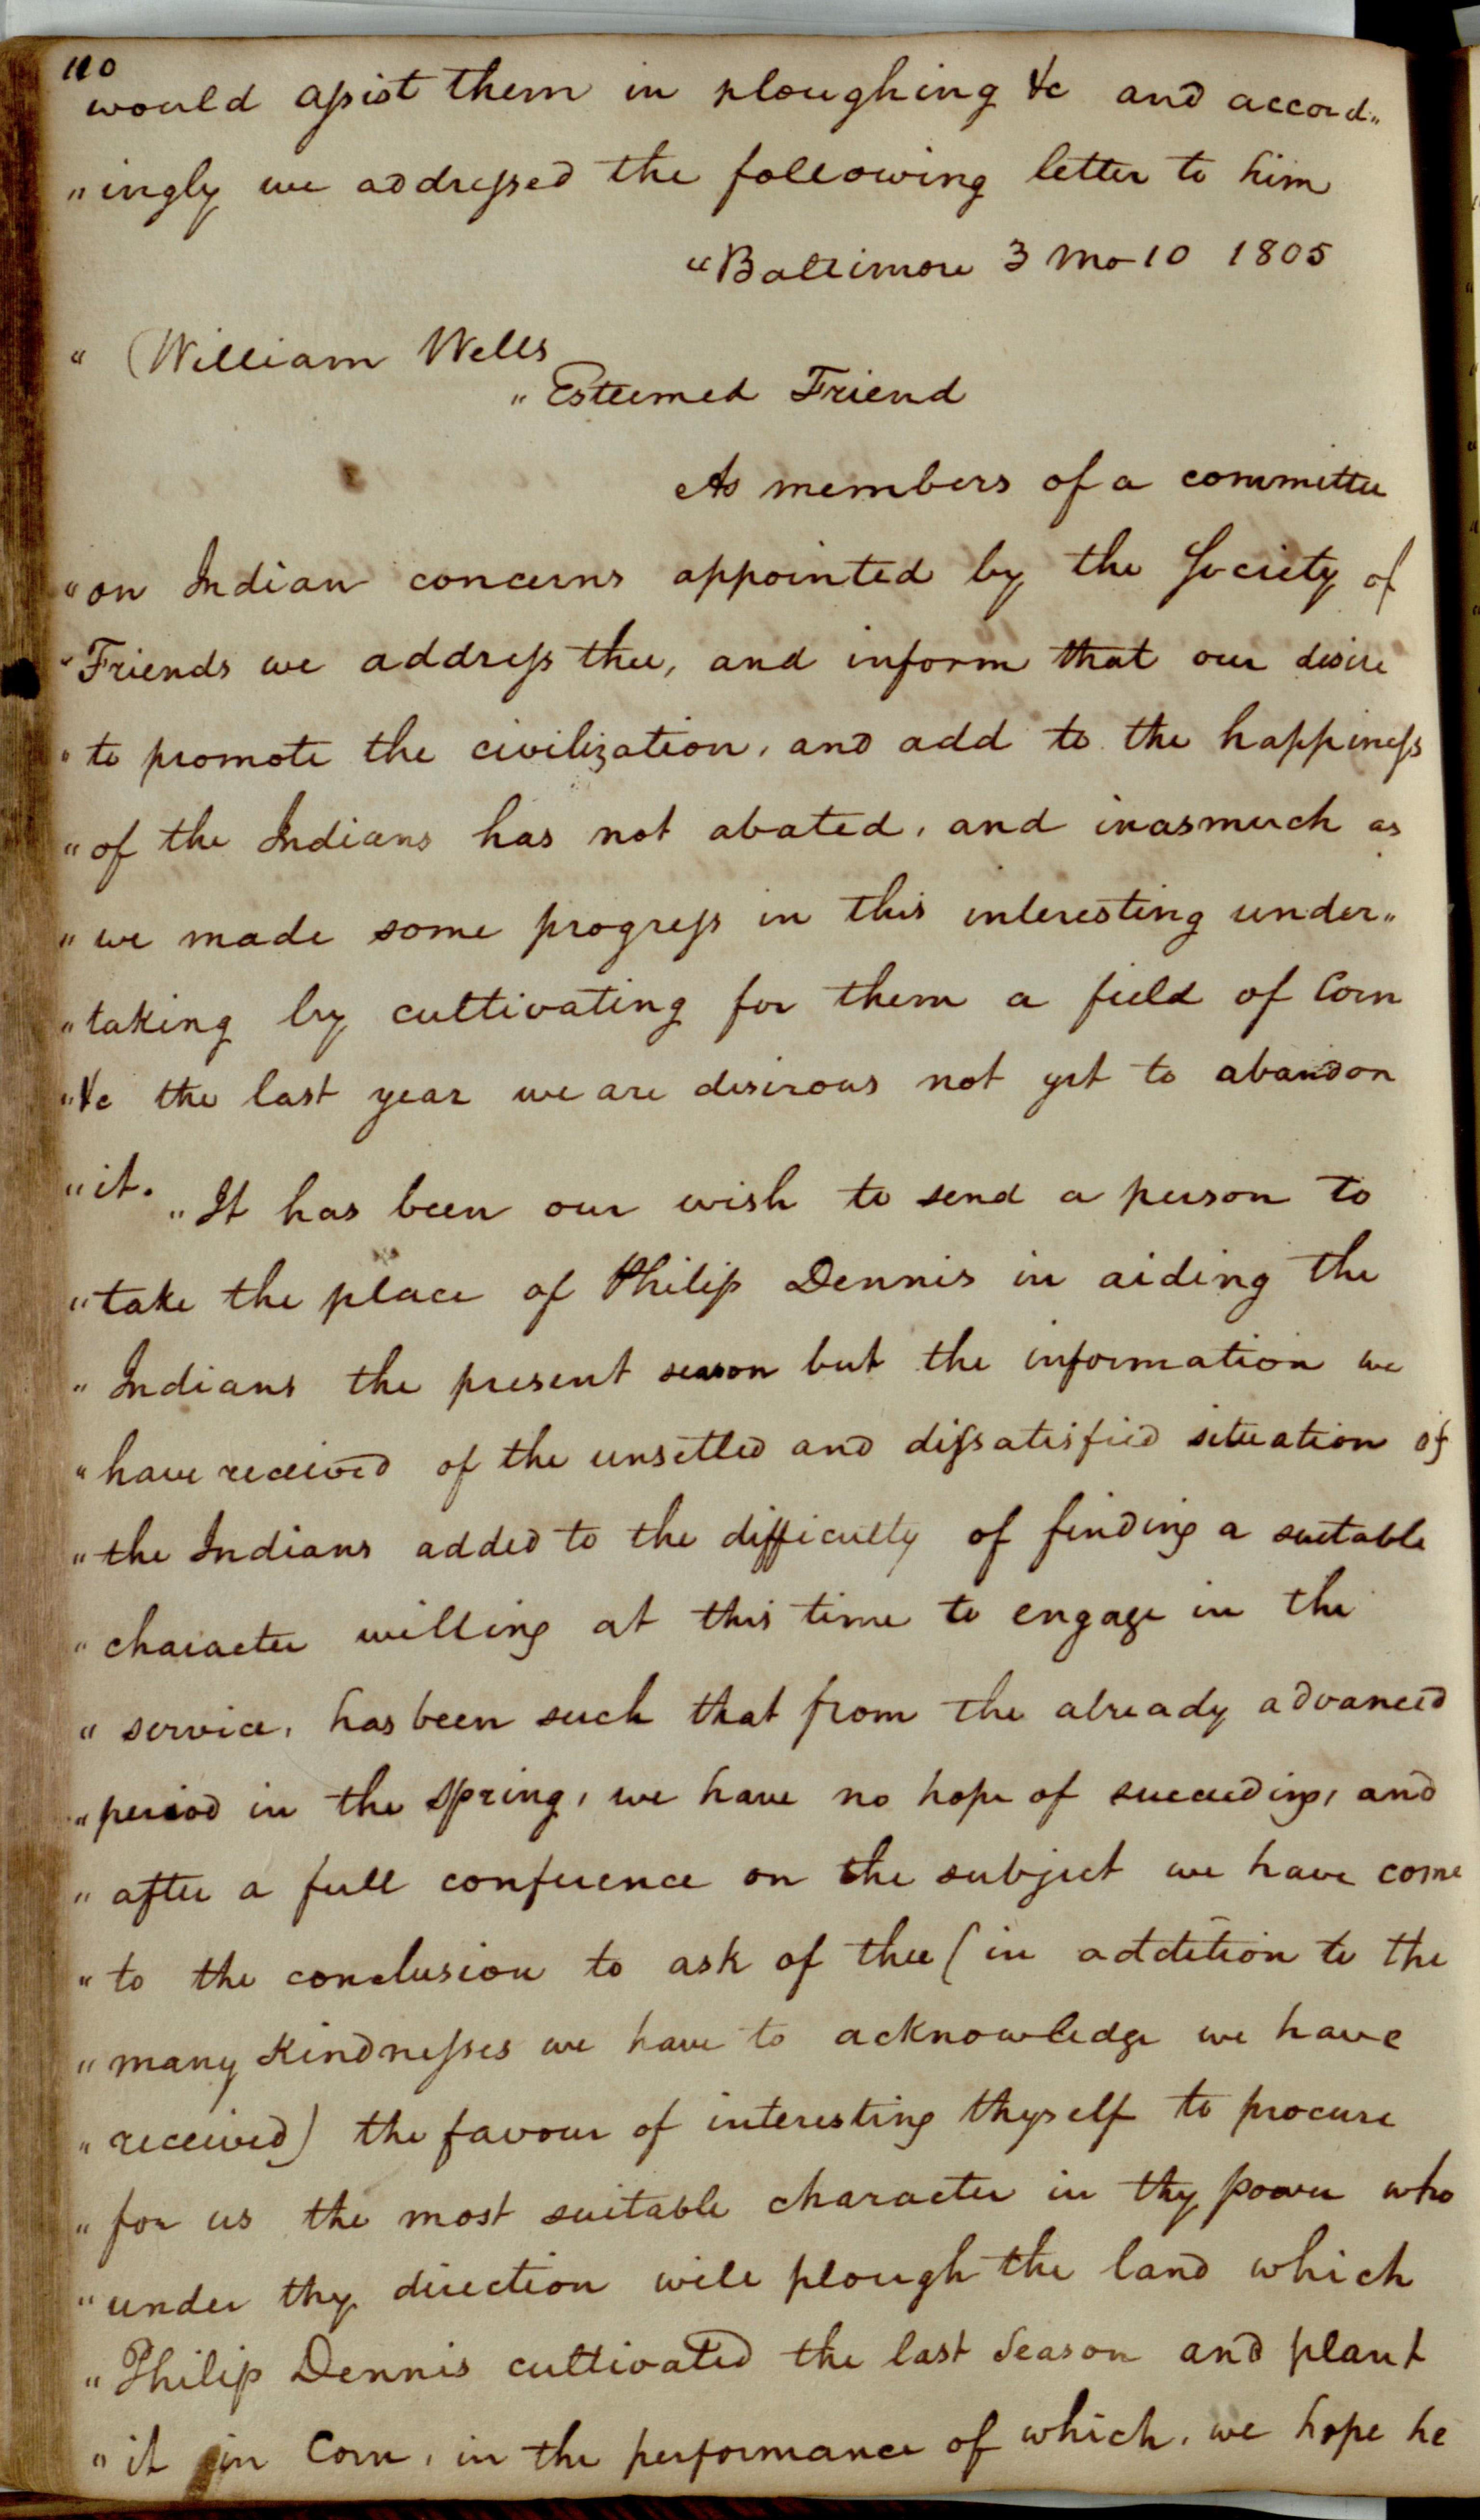 110
would assist them in ploughing &c and accord„
„ingly we addressed the following letter to him
“Baltimore 3 Mo 10 1805
“ William Wells
„ Esteemed Friend
As members of a committee
“on Indian concerns appointed by the Society of
“Friends we address thee, and inform that our desire
“to promote the civilization, and add to the happiness
“of the Indians has not abated, and inasmuch as
„we made some progress in this interesting under„
„taking by cultivating for them a field of Corn
„&c the last year we are desirous not yet to abandon
„it. „It has been our wish to send a person to
„take the place of Philip Dennis in aiding the
„Indians the present season but the information we
“have received of the unsetled and dissatisfied situation of
„the Indians added to the difficulty of finding a suitable
“character willing at this time to engage in the
“service, has been such that from the already advanced
„period in the spring, we have no hope of succeeding, and
„after a full conference on the subject we have come
“to the conclusion to ask of thee (in addition to the
„many kindnesses we have to acknowledge we have
„received) the favour of interesting thyself to procure
„for us the most suitable character in thy power who
“under thy direction will plough the land which
„Philip Dennis cultivated the last Season and plant
„it in Corn, in the performance of which, we hope he